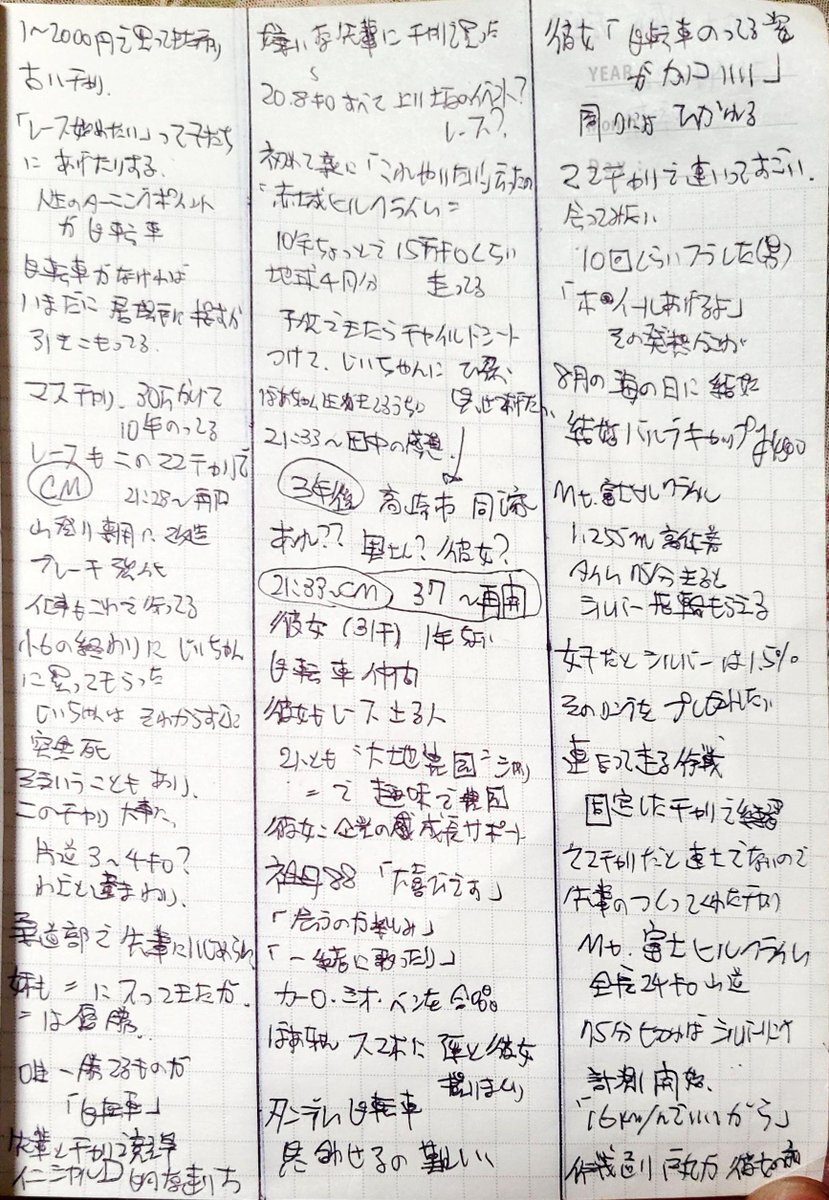 1〜2000円で買ってきたり
古いチャリ、
「レース始めたい」って子たち
にあげたりする。
人生のターニングポイント
が自転車
自転車がなければ
いまだに居場所に
引きこもってる。
ママチャリ、30万かけて
10年のってる
レースもこのママチャリで
CM
21:28〜再開
山登り専用に改造
ブレーキ強化
仕事もこれで行ってる
小6の終わりにじいちゃん
に買ってもらった
じいちゃんはそれからすぐに
突然死
そういうこともあり、
このチャリ大事に、
片道3〜4キロ?
わざと遠まわり、
柔道部で先輩にいじめられ
妹も〃に入ってきたが、
〃は優勝、
唯一勝てるものが
「自転車」
先輩とチャリで競争
イニシャルD的な走り方
嫌いな先輩にチャリで買った
20.8キロすべて上り坂のイベント?
レース?
初めて親に「これやりたい」言ったの
「赤城ヒルクライム〃
10年ちょっとで15万キロくらい
地球4周分 走ってる
子供できたらチャイルドシート
つけて、じいちゃんに
ばあちゃん生きてるうちに 見せてあげたい
21:33〜田中の感想
3年後 高崎市 同
あれ?? 奥さん?彼女?
21:33〜CM 37〜再開
彼女(31才) 1年ちょい
自転車仲間
彼女もレース出る人
2人とも“大地農園”
〃で趣味で農園
彼女:企業の成長サポート
祖母88「大喜びです」
「会うのが楽しみ」
「一緒に歌ったり」
カーロ・ミオ・ベンを合唱
ばあちゃんスマホに孫と彼女
撮りまくり
タンデム自転車
息合わせるの難しい
彼女「自転車のってる姿
がカッコいい」
同じ ひかれる
ママチャリで速いってすごい、
会ってみたい
10回くらいフラれた(男)
「ホイールあげるよ」
その発想が
8月の海の日に結婚
結婚
Mt.富士ヒルクライム
1,255m高低差
タイム75分きると
シルバー指輪もらえる
女子だとシルバーは1.5%
そのリングをプレゼントしたい
連なって走る作戦
固定したチャリで練習
ママチャリだと出れないので
先輩のつくってくれたチャリ
Mt.富士ヒルクライム
全長24キロ山道
75分切れればシルバー
計測開始、
「16km/hでいいから」
作戦通り 彼女の前